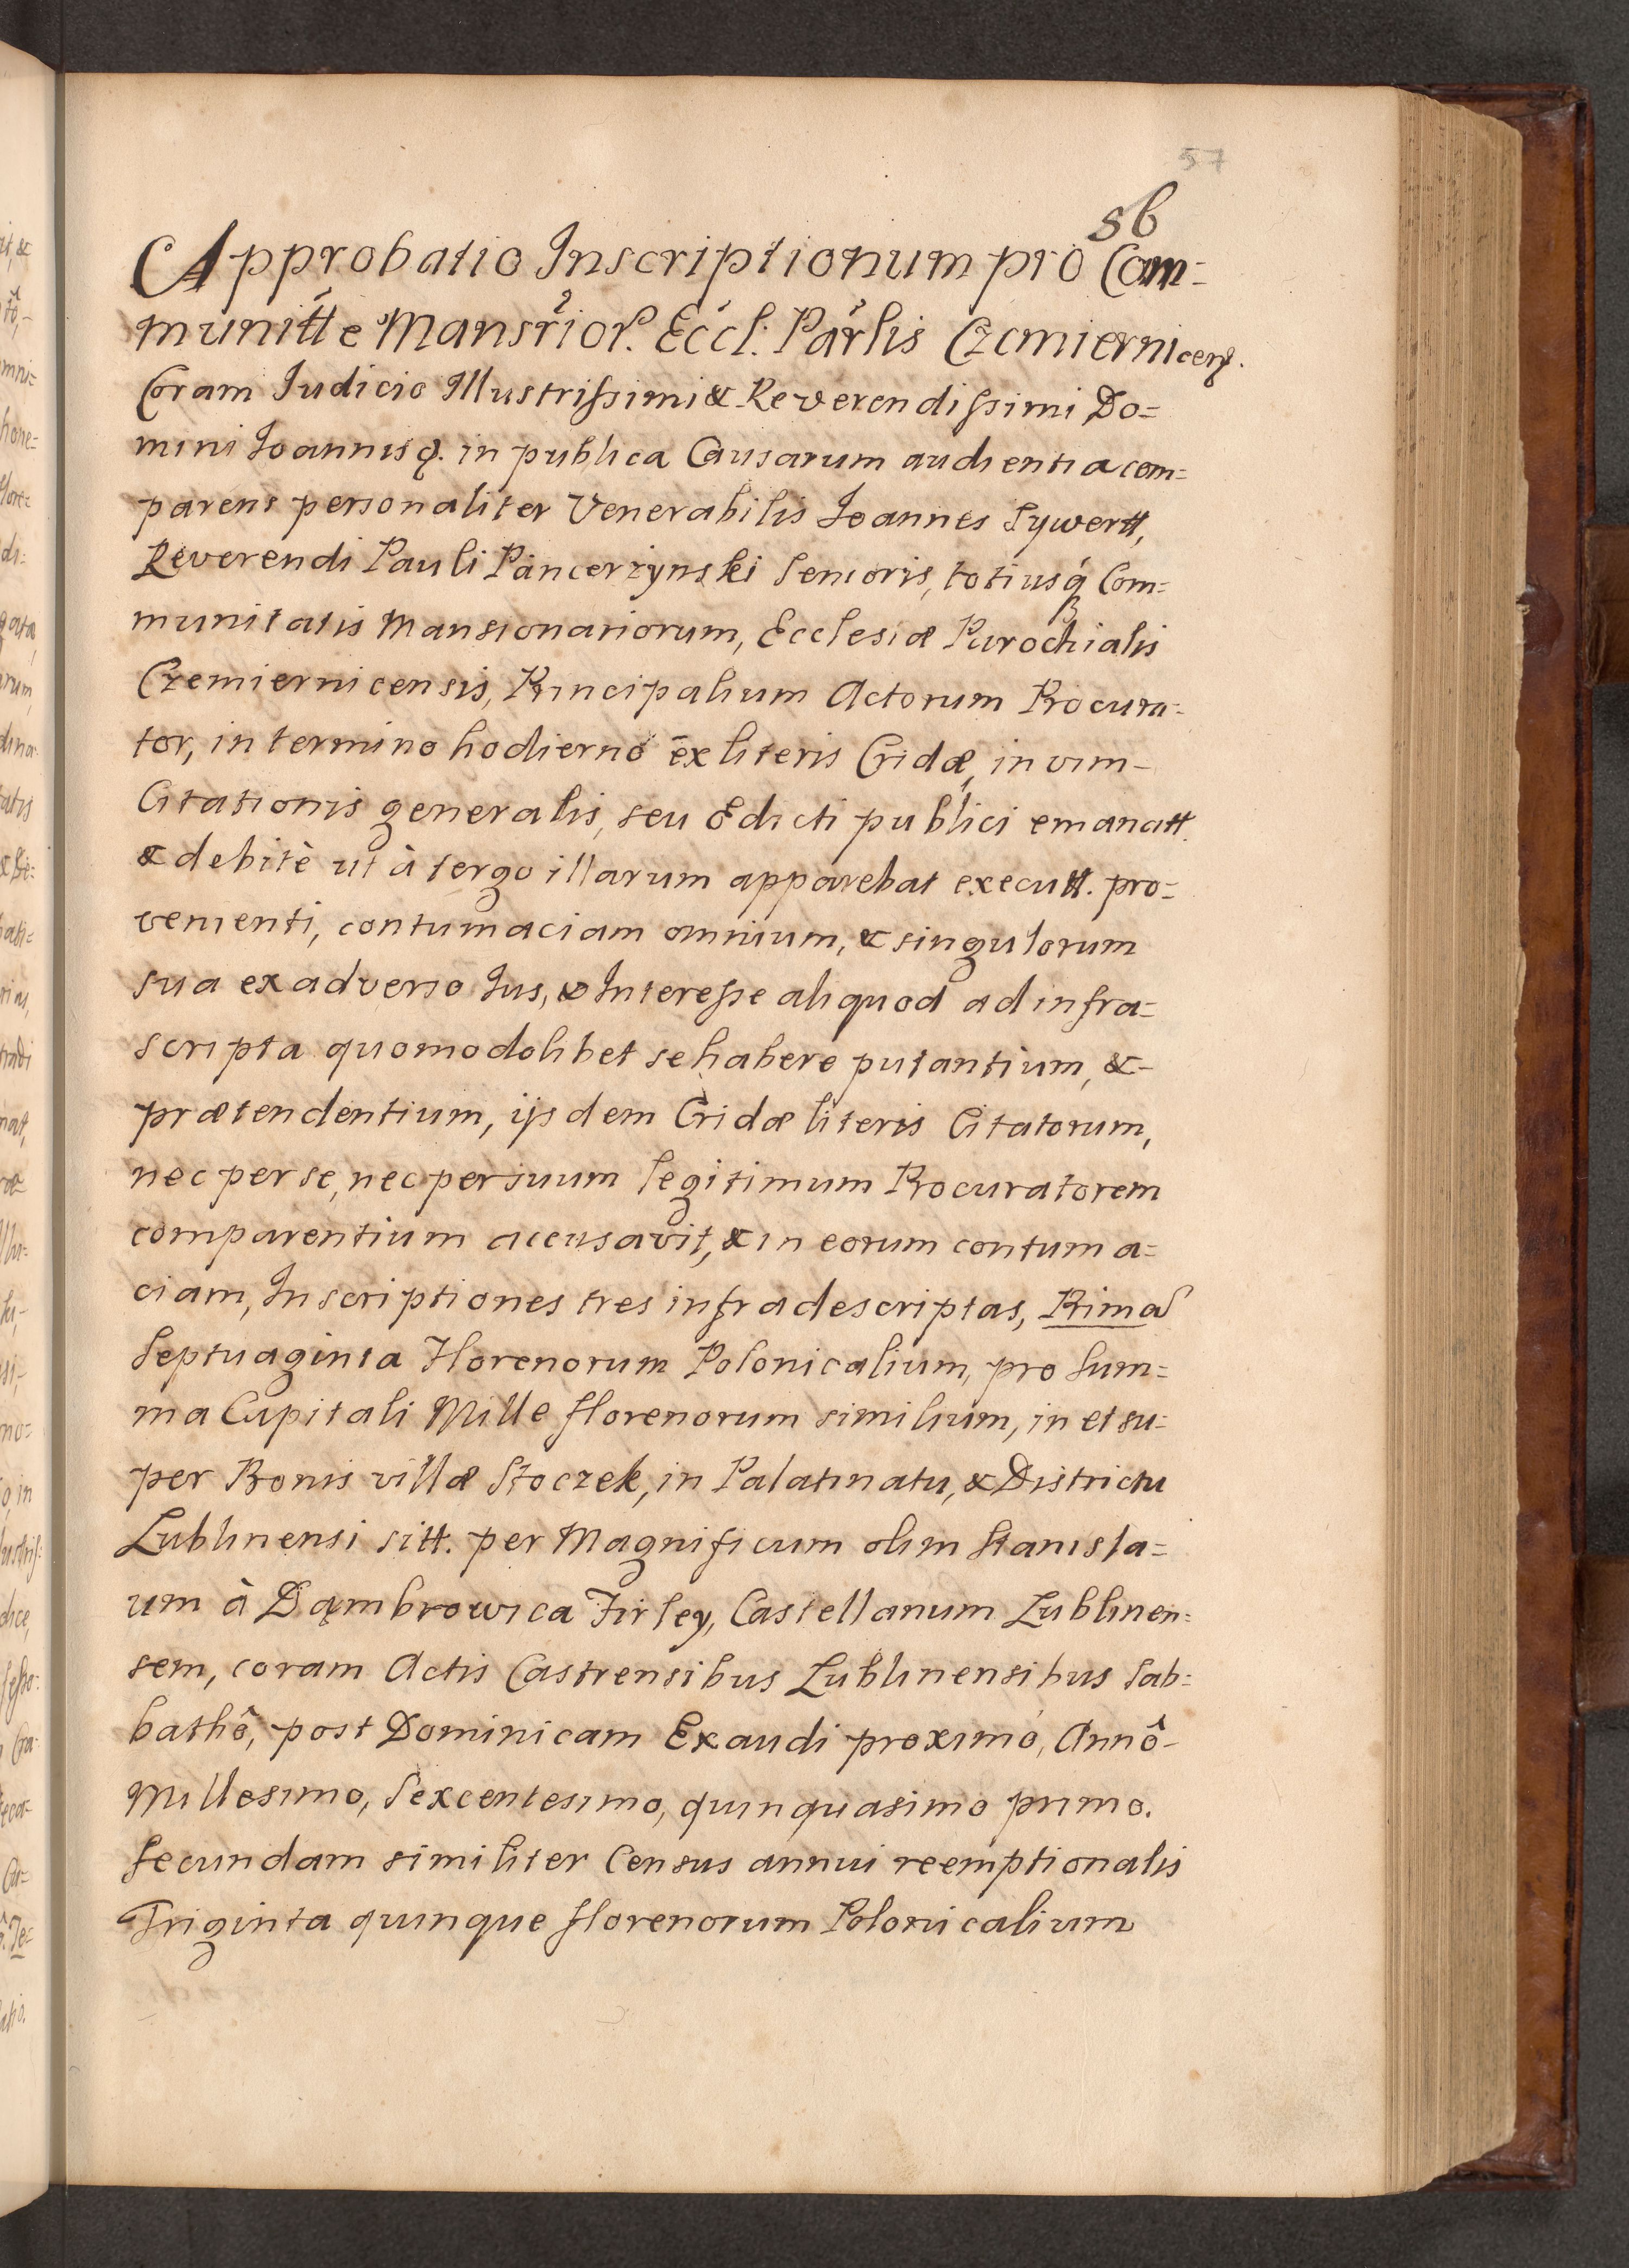 57
56
Approbatio Inscriptionum pro Com=
munitte Mansrior. Eccl. Parlis Czemiernicen.
Coram Iudicio Illustrissimi & Reverendissimi Do=
mini Ioannis &. in publica Causarum audientia com=
parens personaliter Venerabilis Ioannes Sywertt,
Reverendi Pauli Pancerzynski Senioris, totiusq́ Com=
munitatis Mansionariorum, Ecclesiæ Parochialis
Czemiernicensis, Principalium Actorum Procura=
tor, in termino hodierno ex literis Cridæ, in vim-
Citationis generalis, seu Edicti publici emanatt.
& debitè ut à tergo illarum apparebat executt. pro=
venienti, contumaciam omnium, & singulorum
sua ex adverso Jus, & Interesse aliquod ad infra=
scripta quomodolibet se habere putantium, &-
prætendentium, ijsdem Cridæ literis Citatorum,
nec per se, nec per suum legitimum Procuratorem
comparentium accusavit, & in eorum contuma=
ciam, Inscriptiones tres infradescriptas, Prima
Septuaginta Florenorum Polonicalium, pro Sum=
ma Capitali Mille florenorum similium, in et su=
per Bonis villæ Stoczek, in Palatinatu, & Districtu
Lublinensi sitt. per Magnificum olim Stanisla=
um à Dąmbrowica Firley, Castellanum Lublinen=
sem, coram Actis Castrensibus Lublinensibus Sab=
bathô, post Dominicam Exaudi proximó, Annô-
Millesimo, Sexcentesimo, quinquasimo primo.
Secundam similiter Census annui reemptionalis
Triginta quinque florenorum Polonicalium